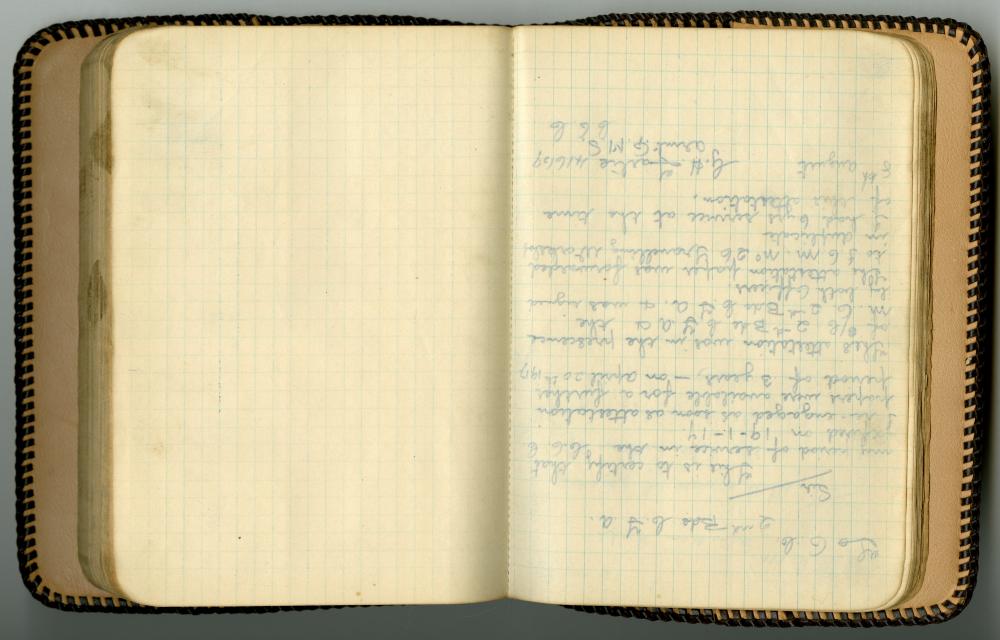 To O.C.
2nd Bde C.F.A.
Sir
This is to certify that
my period of service in the C.P.F.
expired on 19-1-17.
I re-engaged as soon as attestation
papers were available for a further
period of 3 years, — on April 20th 1917
This attestation was in the presence
of O/C 2nd Bde C.F.A. & the
M.O. 2nd Bde C.F.A. & was signed
by both officers
The attestation paper was forwarded
to I.O.M. No 26 Travelling Workshop
in duplicate
I had 6 yrs service at the time
of this attestation.
8th August
G.H. 41669
Armt. Q.M.S.